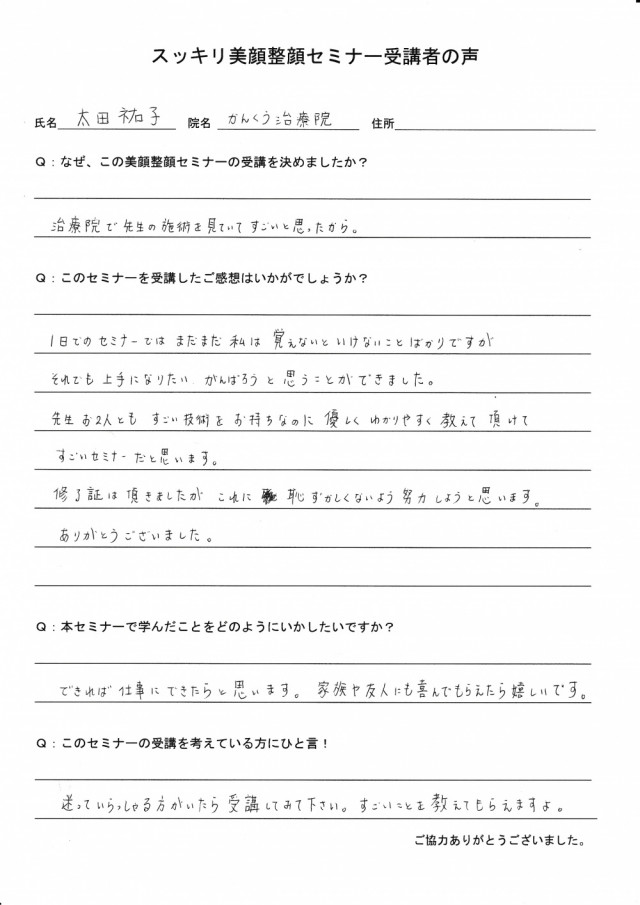 スッキリ美顔整顔セミナー受講者の声
氏名 太田 祐子 院名 かんくう治療院 住所
Q：なぜ、この美顔整顔セミナーの受講を決めましたか？
治療院で先生の施術を見ていてすごいと思ったから。
Q：このセミナーを受講したご感想はいかがでしょうか？
1日でのセミナーではまだまだ私は覚えないといけないことばかりですが
それでも上手になりたい、がんばろうと思うことができました。
先生お2人ともすごい技術をお持ちなのに優しくわかりやすく教えて頂けて
すごいセミナーだと思います。
修了証は頂きましたがこれに恥ずかしくないよう努力しようと思います。
ありがとうございました。
Q：本セミナーで学んだことをどのようにいかしたいですか？
できれば仕事にできたらと思います。家族や友人にも喜んでもらえたら嬉しいです。
Q：このセミナーの受講を考えている方にひと言！
迷っていらっしゃる方がいたら受講してみて下さい。すごいことを教えてもらえますよ。
ご協力ありがとうございました。